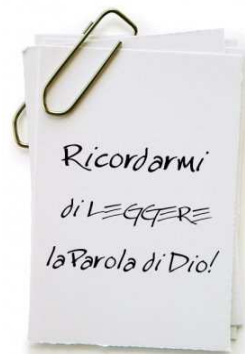 Ricordarmi
di LEGGERE
la Parola di Dio!